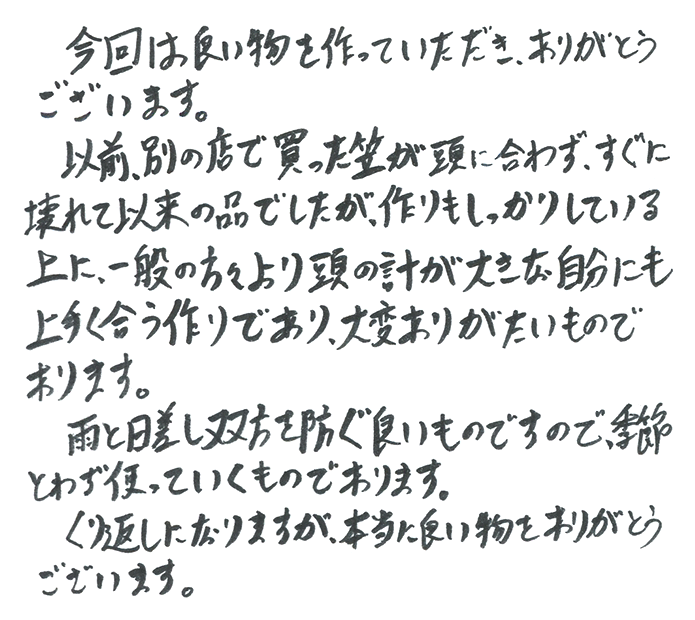 今回は良い物を作っていただき、ありがとう
ございます。
以前、別の店で買った笠が頭に合わず、すぐに
壊れて以来の品でしたが、作りもしっかりしている
上に、一般の方々より頭の計が大きな自分にも
上手く合う作りであり、大変ありがたいもので
あります。
雨と日差し双方を防ぐ良いものですので、季節
とわず使っていくものであります。
くり返しになりますが、本当に良い物をありがとう
ございます。